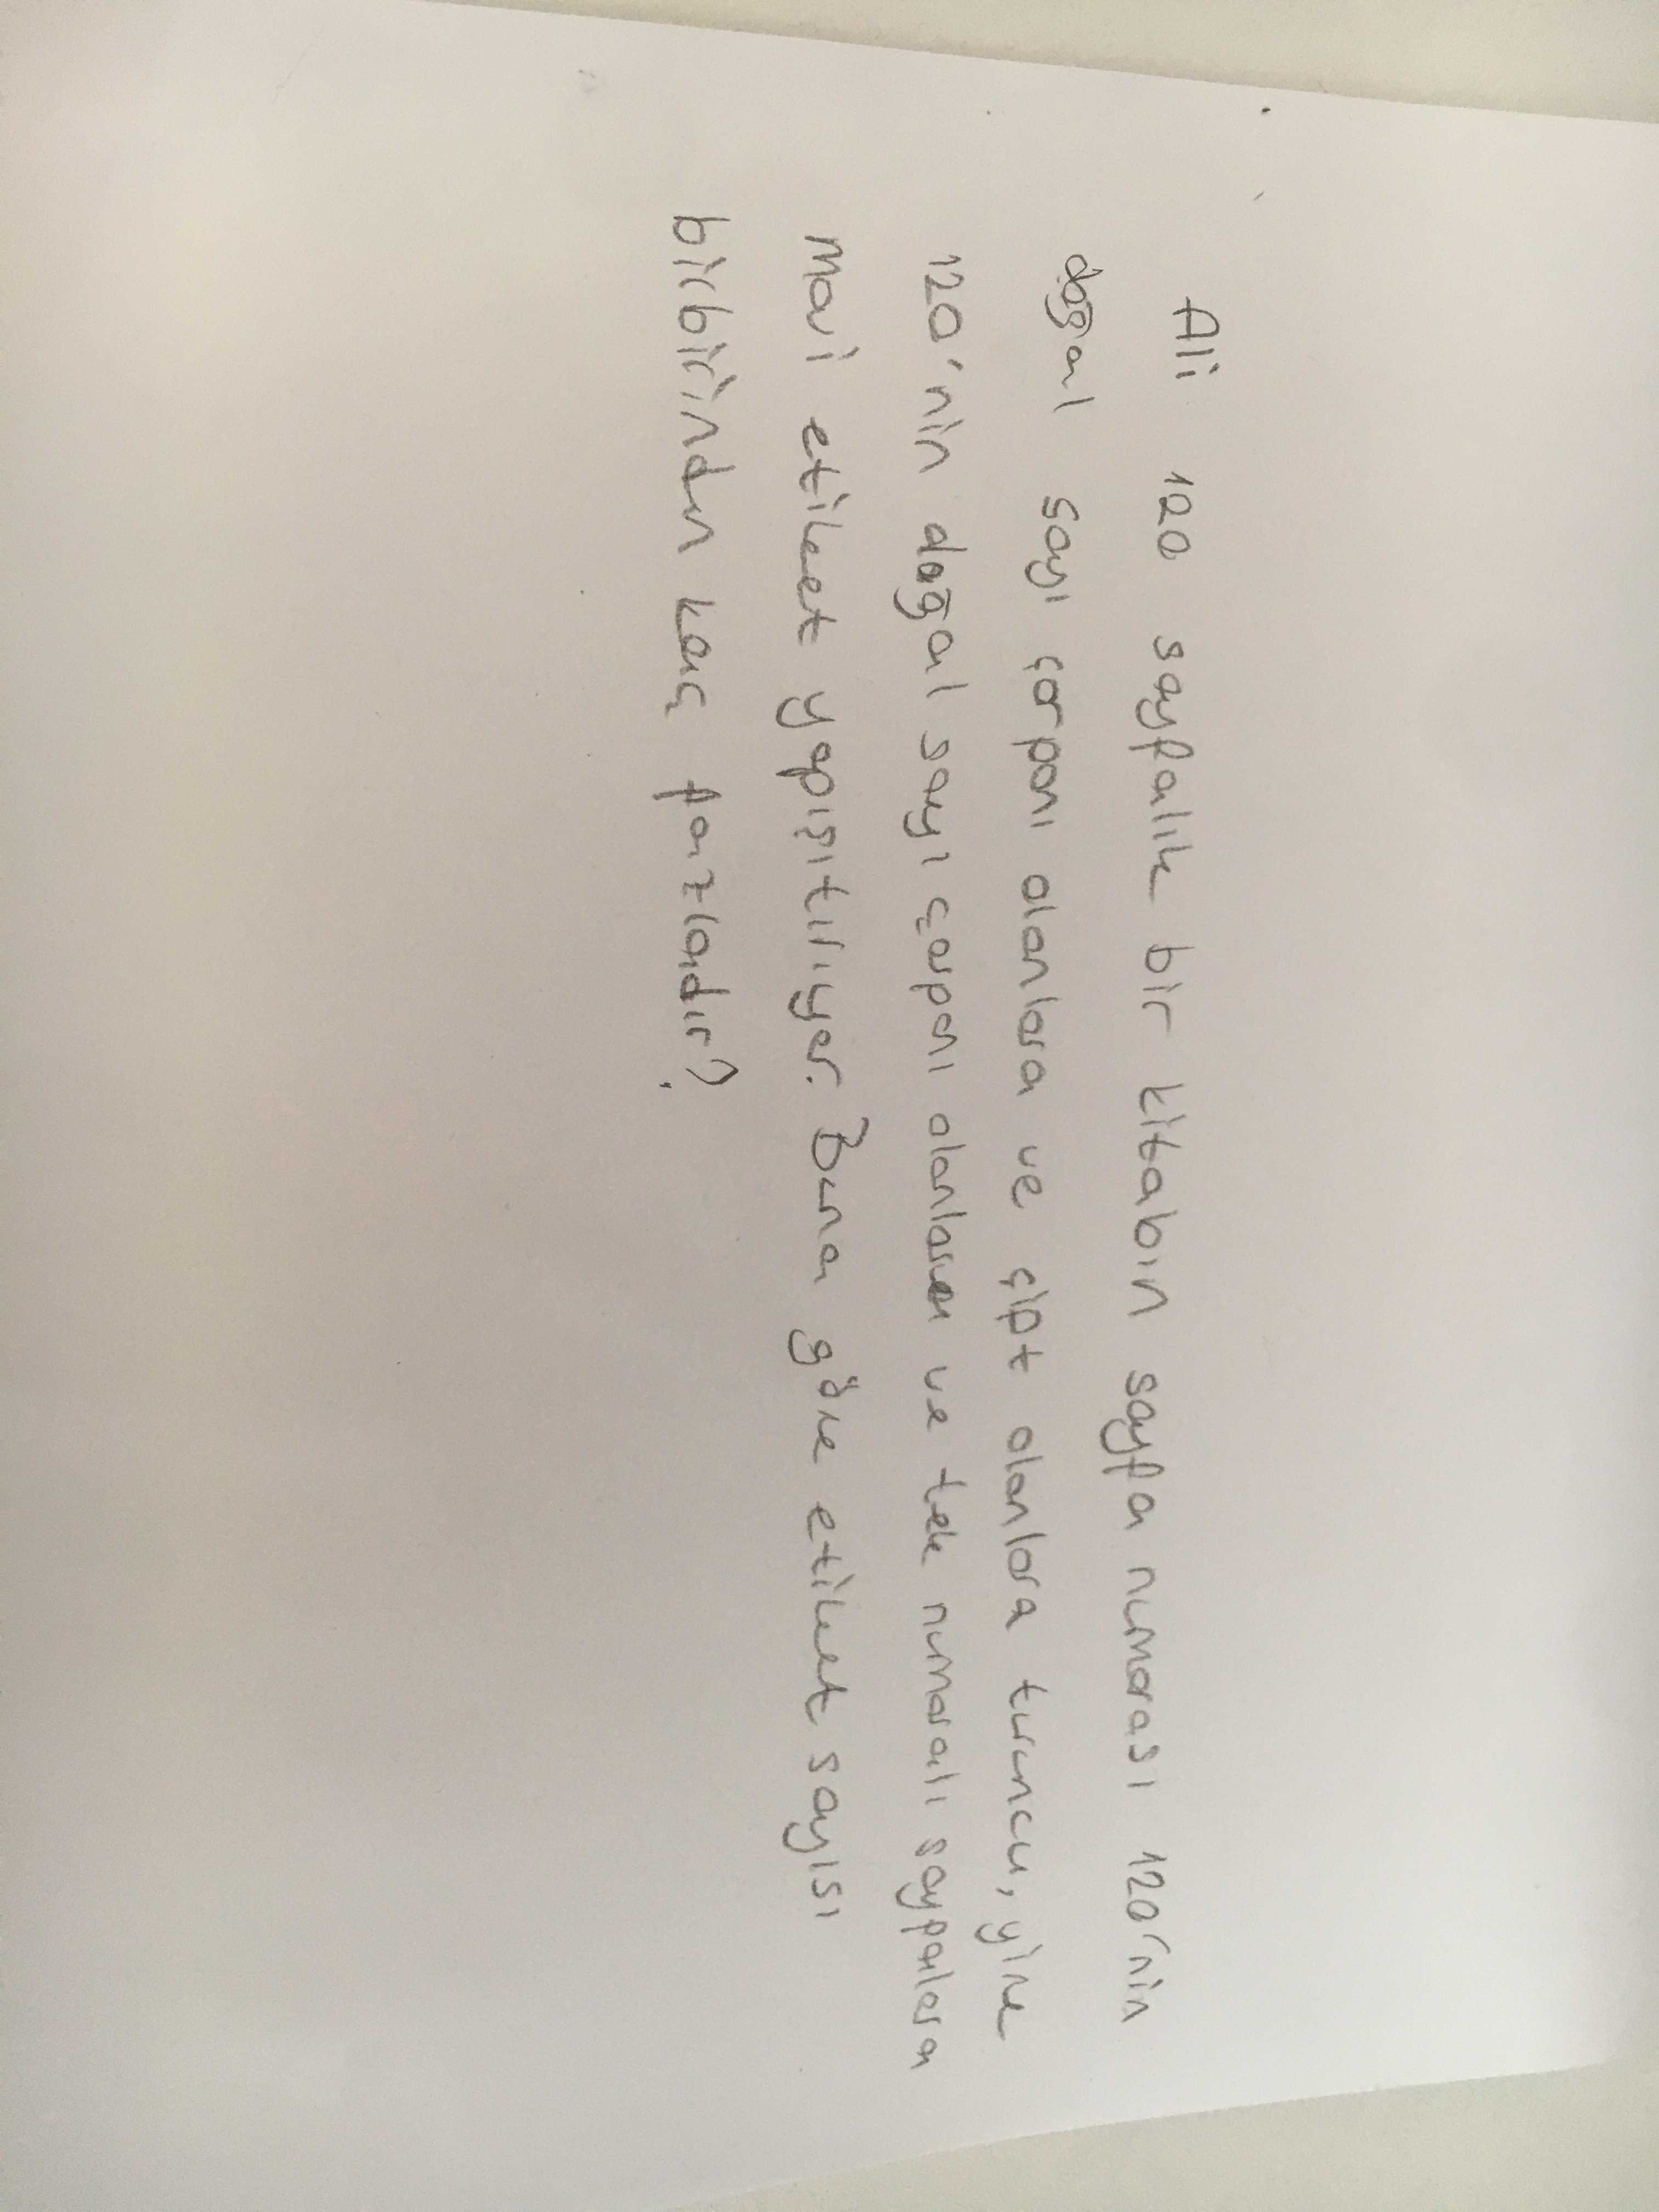 Ali 120 sayfalık bir kitabın sayfa numarası 120'nin
doğal sayı çarpanı olanlara ve çift olanlara turuncu, yine
120'nin doğal sayı çarpanı olanlara ve tek numaralı sayfalara
mavi etiket yapıştırıyor. Buna göre etiket sayısı
birbirinden kaç fazladır?